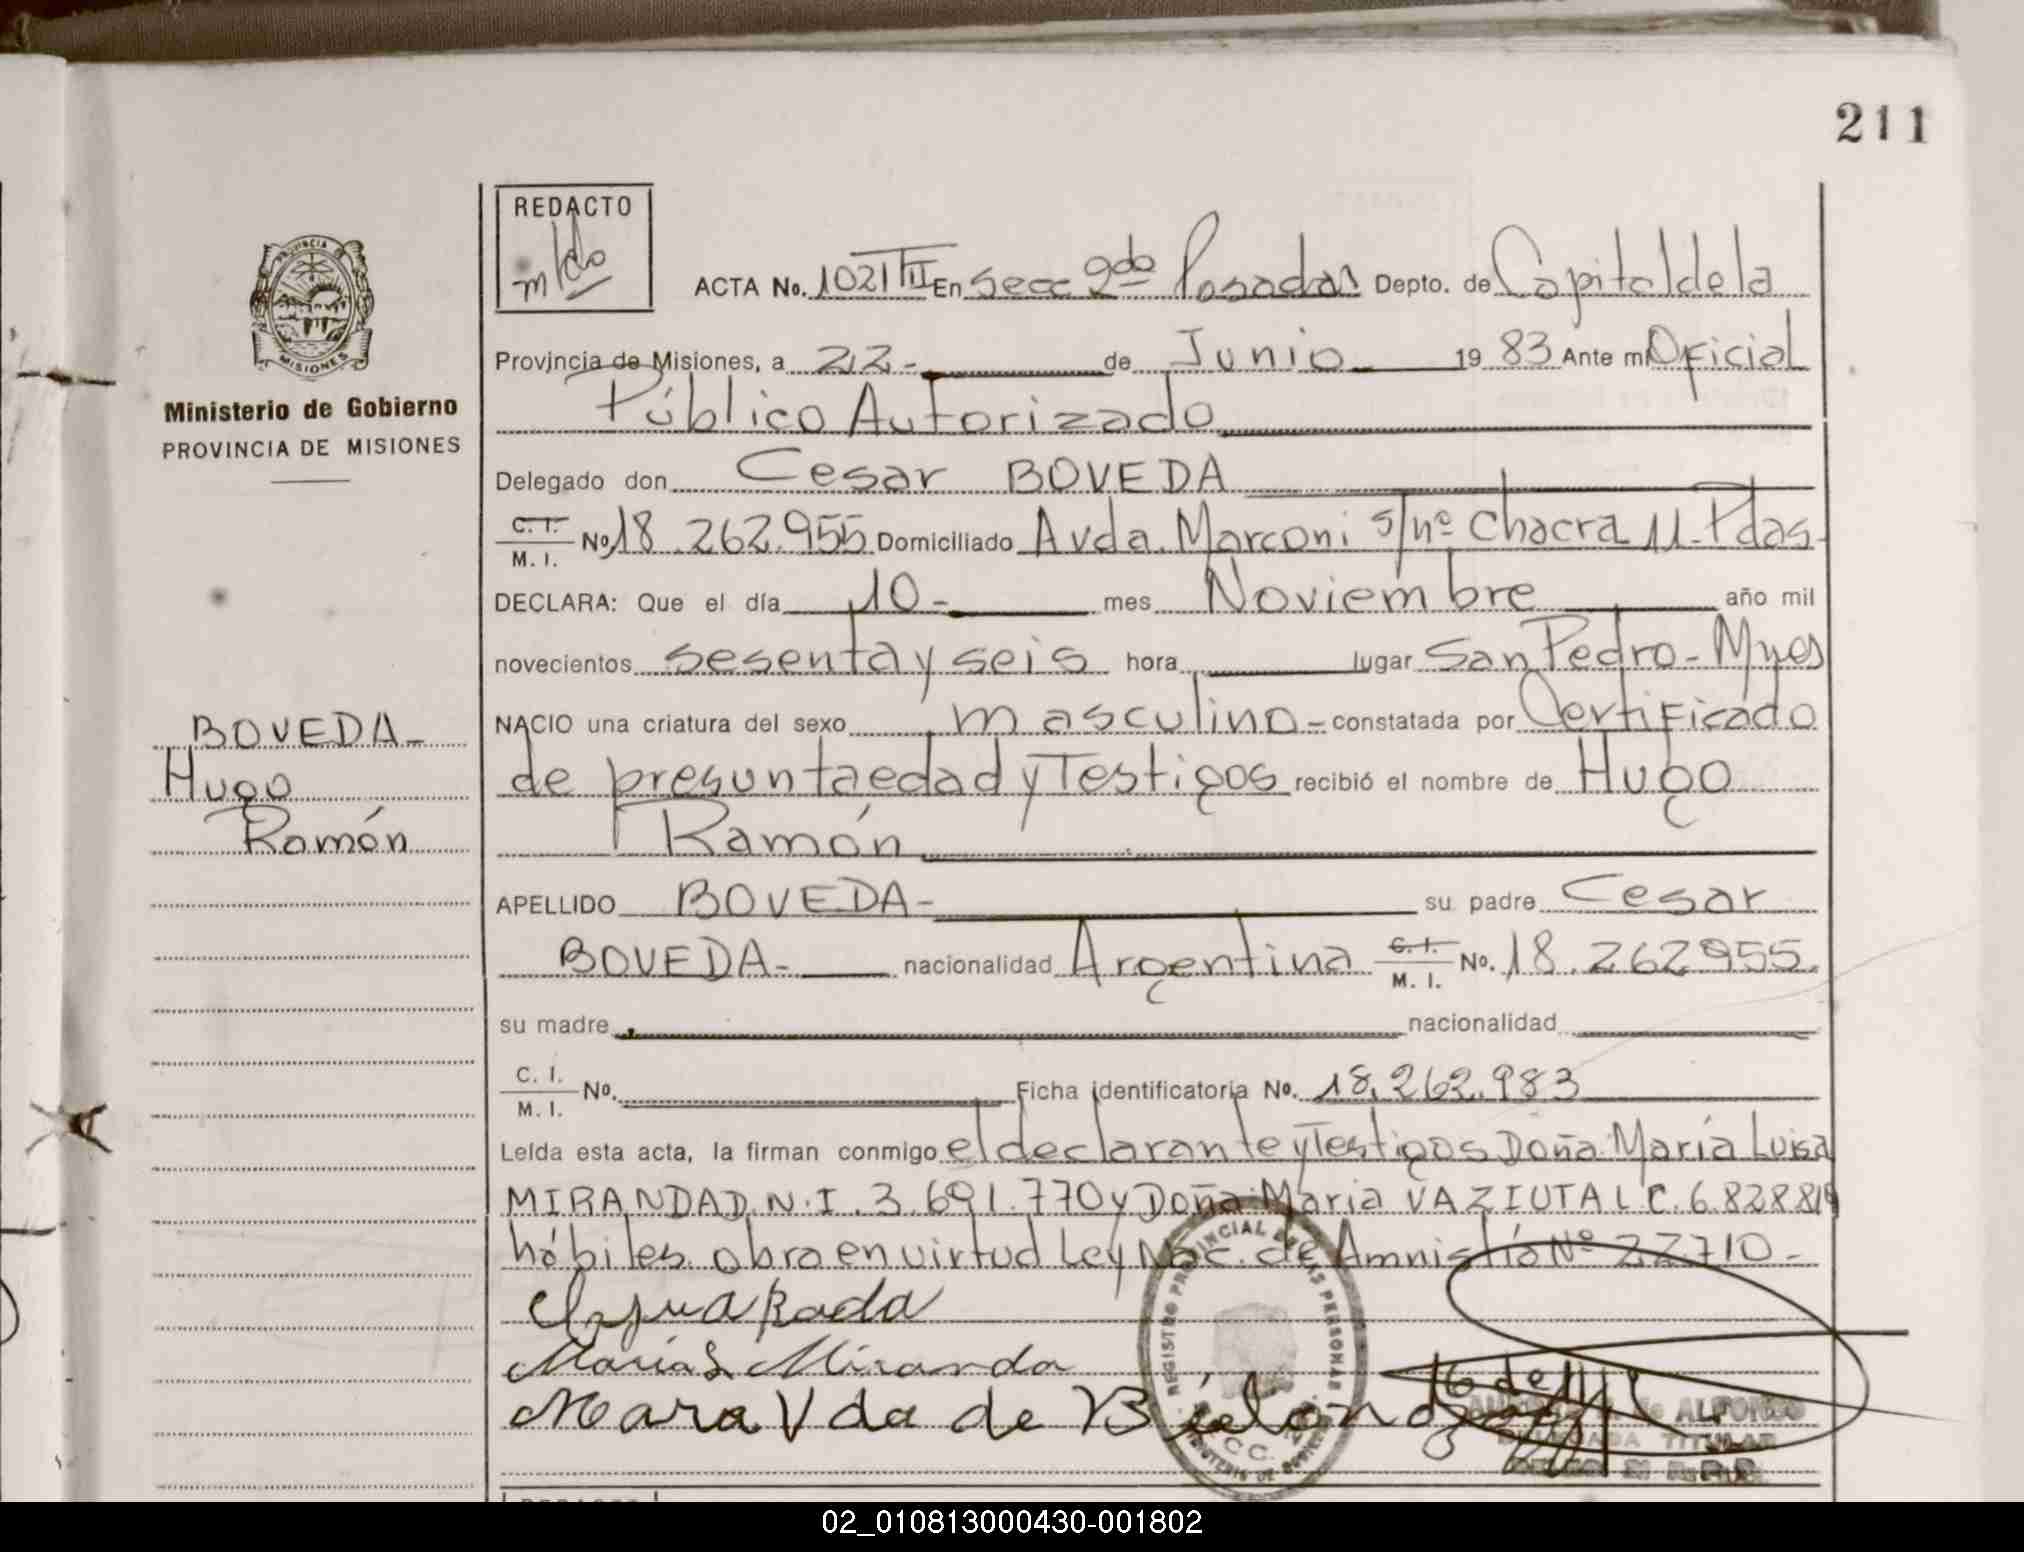 211
REDACTO
PROVINCIA DE
MISIONES
Ministerio de Gobierno
PROVINCIA DE MISIONES
BOVEDA-
Hugo
Ramón
ACTA No. 1021 TIII En Secc 2da Posadas Depto. de Capital de la
Provincia de Misiones, a 22- de Junio 19 83 Ante mi Oficial
Público Autorizado
Delegado don Cesar BOVEDA
C. I. M. I. No. 18.262.955 Domiciliado Avda. Marconi s/nº Chacra 11-Pdas-
DECLARA: Que el día 10- mes Noviembre año mil
novecientos sesenta y seis hora lugar San Pedro-Mnes
NACIO una criatura del sexo masculino- constatada por Certificado
de presunta edad y Testigos recibió el nombre de Hugo
Ramón
APELLIDO BOVEDA- su padre Cesar
BOVEDA- nacionalidad Argentina C. I. M. I. No. 18.262955.
su madre nacionalidad
C. I. M. I. No. Ficha identificatoria No. 18.262.983
Leída esta acta, la firman conmigo el declarante y Testigos Doña María Luisa
MIRANDA D.N.I. 3.691.770 y Doña María VAZIUTA L.C. 6.828
hábiles. obra en virtud Ley Nac. de Amnistía Nº 22710-
María L Miranda
Mara Vda de
REGISTRO PROVINCIAL DE LAS PERSONAS
de ALFONSO
TITULAR
02_010813000430-001802